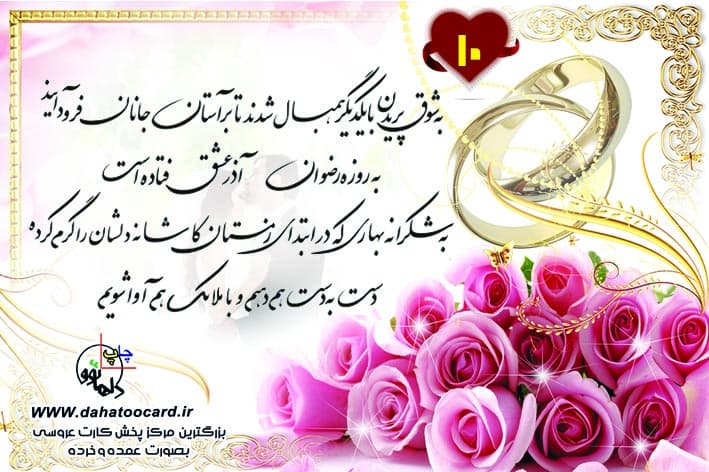 ۱۰
به شوق پریدن با یکدیگر همبال شدند تا بر آستان جانان فرود آیند
به روزه رضوان آذر عشق فتاده است
به شکرانه بهاری که در ابتدای زمستان کاشانه دلشان را گرم کرده
دست به دست هم دهیم و با ملائک هم آوا شویم
چاپ
داهاتوو
WWW.dahatoocard.ir
بزرگترین مرکز پخش کارت عروسی
بصورت عمده و خرده